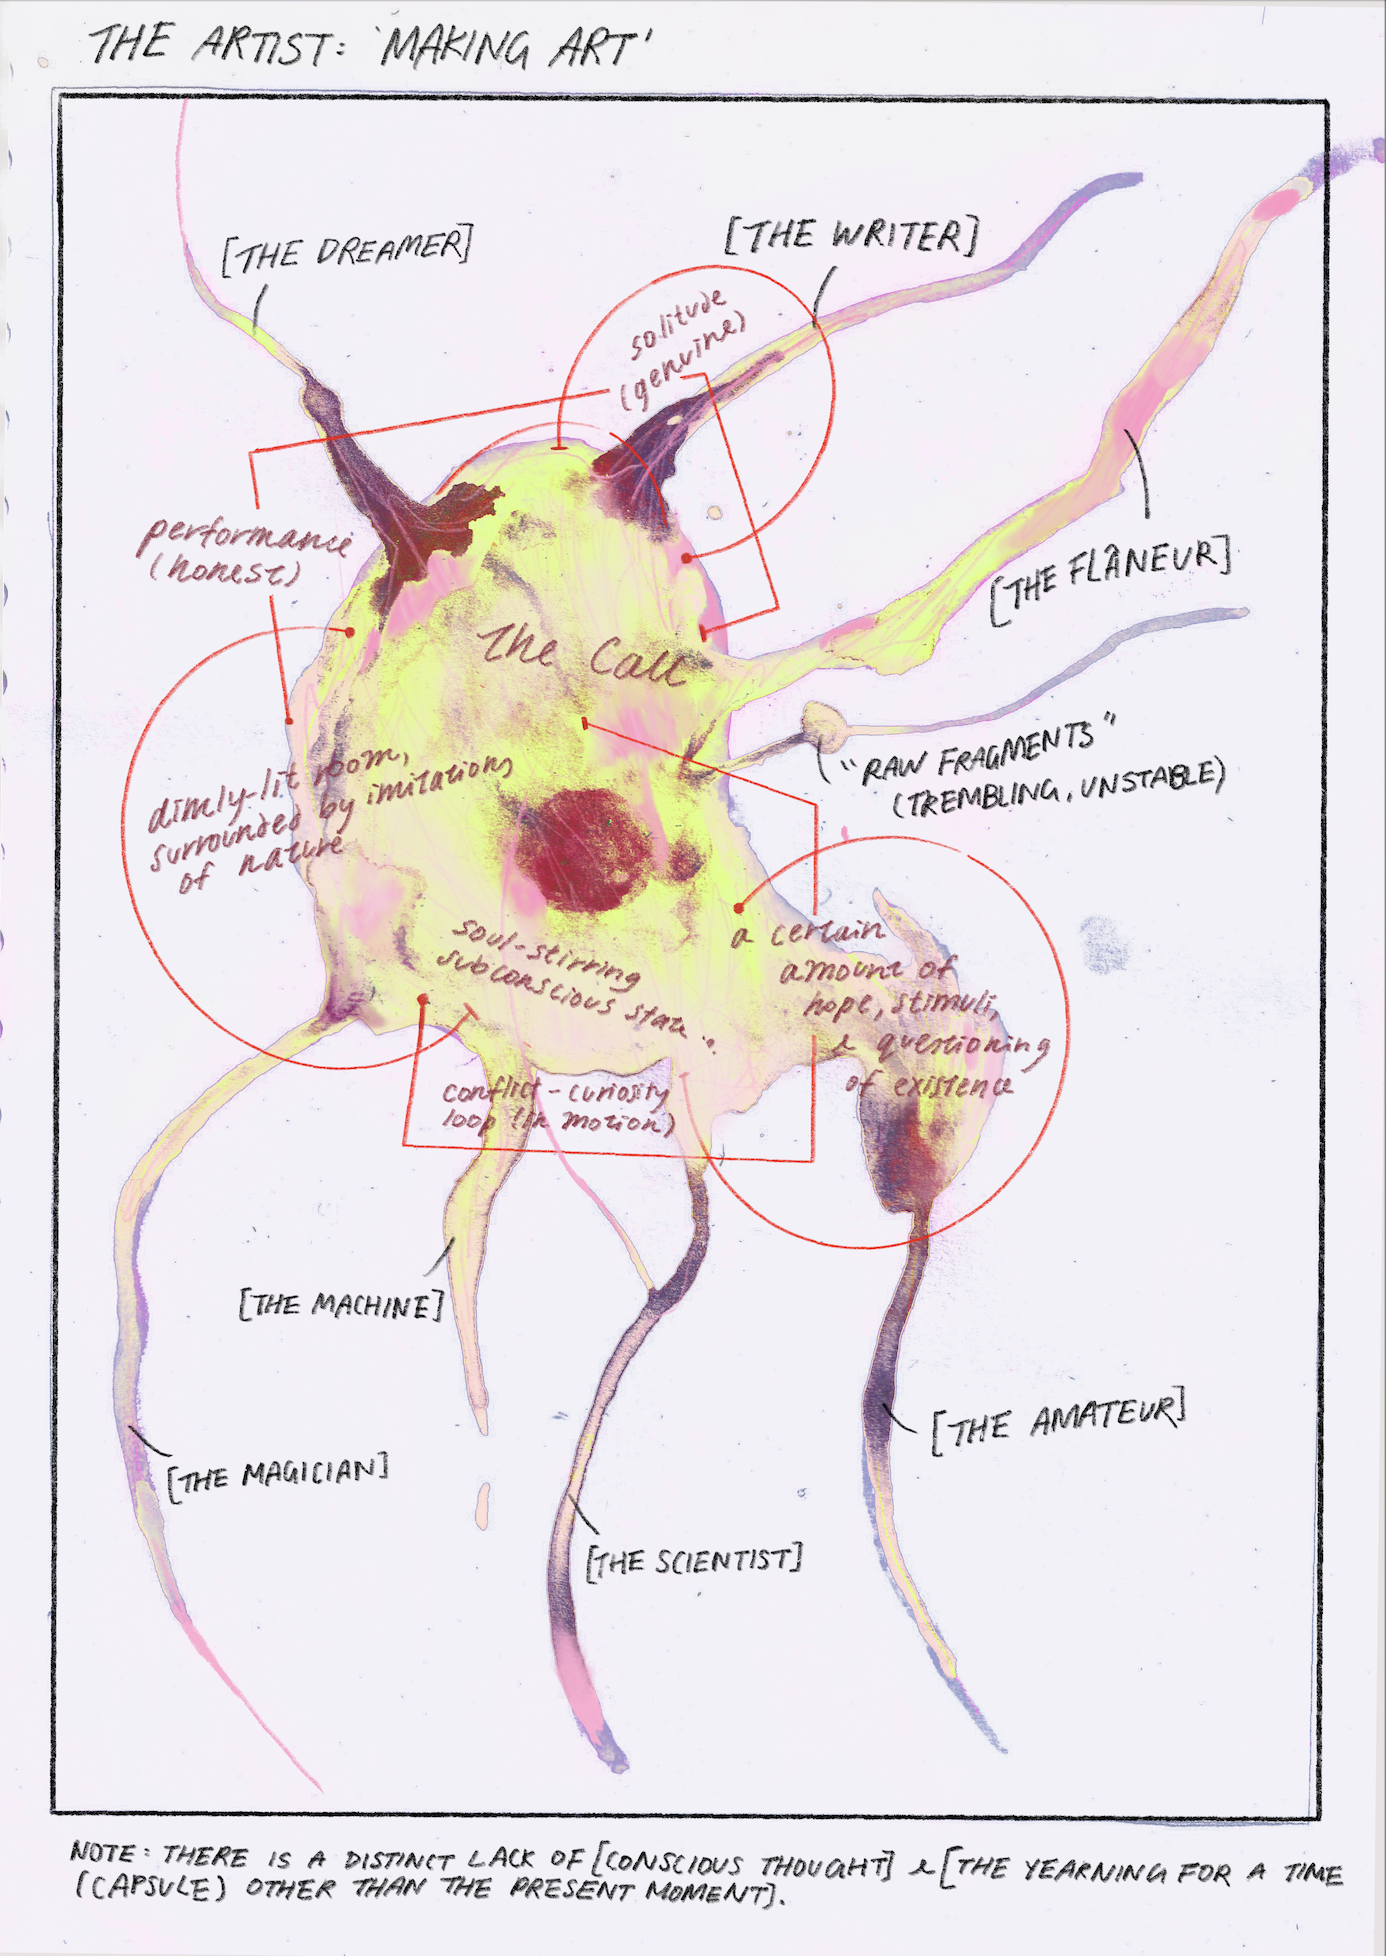 THE ARTIST: 'MAKING ART'
[THE DREAMER]
[THE WRITER]
solitude
(genuine)
performance
(honest)
[THE FLÂNEUR]
The Call
"RAW FRAGMENTS"
(TREMBLING, UNSTABLE)
dimly-lit room,
surrounded by imitations
of nature
soul-stirring
subconscious state...
a certain
amount of
hope, stimuli,
& questioning
of existence
conflict-curiosity
loop (in motion)
[THE MACHINE]
[THE AMATEUR]
[THE MAGICIAN]
[THE SCIENTIST]
NOTE: THERE IS A DISTINCT LACK OF [CONSCIOUS THOUGHT] & [THE YEARNING FOR A TIME
(CAPSULE) OTHER THAN THE PRESENT MOMENT].